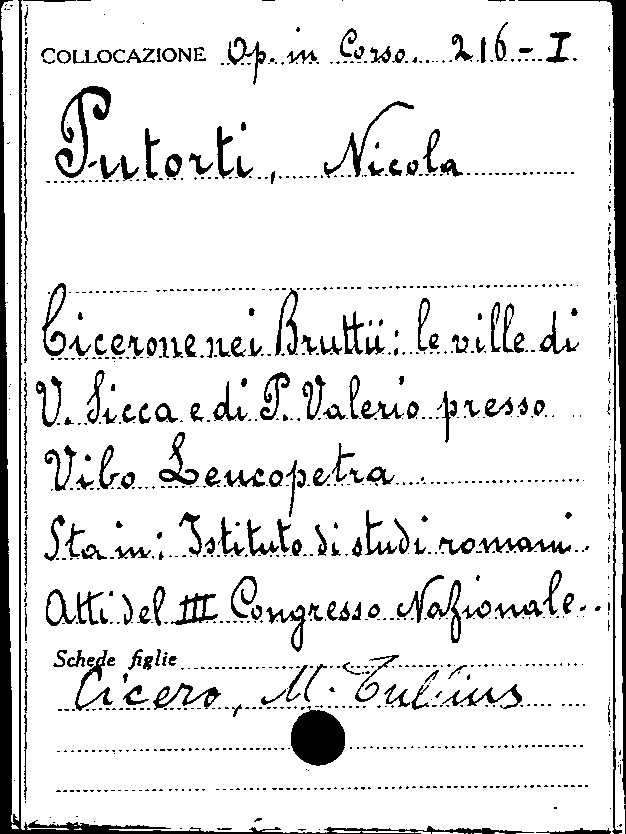 COLLOCAZIONE Op. in Corso. 216-I
Putortì, Nicola
Cicerone nei Bruttii: le ville di
V. Sicca e di P. Valerio presso
Vibo Leucopetra
Sta in: Istituto di studi romani.
Atti del III Congresso Nazionale..
Schede figlie
Cicero, M. Tullius